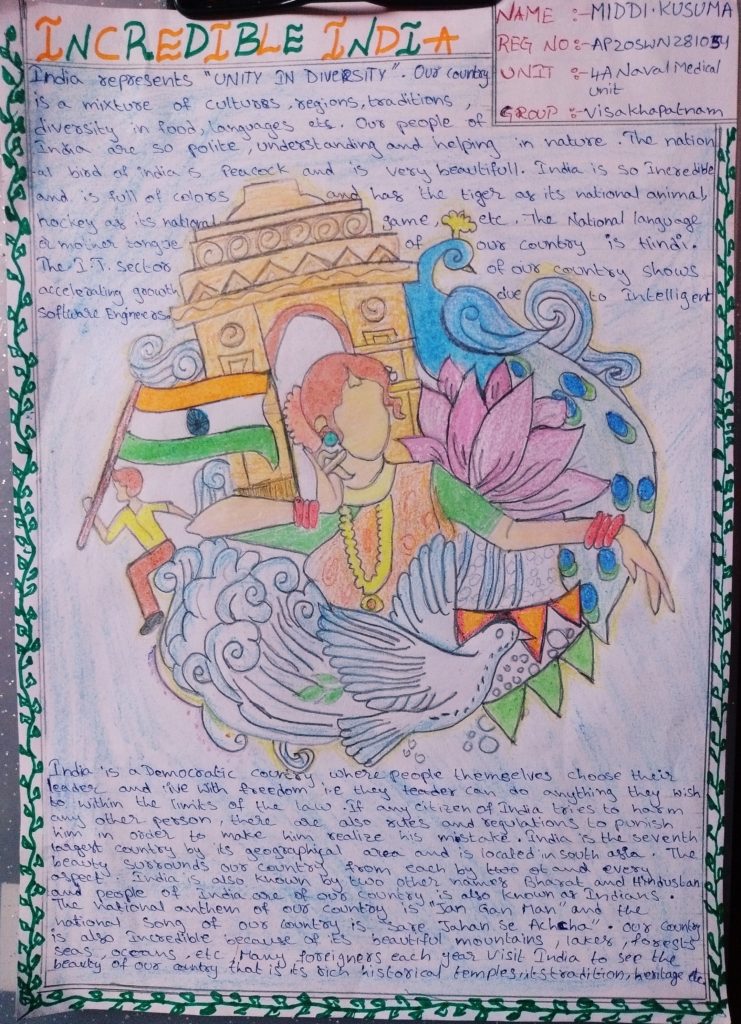 INCREDIBLE INDIA
NAME :- MIDDI.KUSUMA
REG NO:- AP20SWN281034
UNIT :- 4A Naval Medical
unit
GROUP :- Visakhapatnam
India represents "UNITY IN DIVERSITY". Our country
is a mixture of cultures, regions, traditions,
diversity in food, languages ets. Our people of
India are so polite, understanding and helping in nature. The nation
-al bird of india is Peacock and is very beautifull. India is so Incredible
and is full of colors and has the tiger as its national animal,
hockey as its national game, etc. The National language
or mother tongue of our country is Hindi.
The I.T. sector of our country shows
accelerating growth due to Intelligent
software Engineers.
India is a Democratic country where people themselves choose their
leader and live with freedom i.e they leader can do anything they wish
to within the limits of the law. If any citizen of India tries to harm
any other person, there are also rules and regulations to punish
him in order to make him realize his mistake. India is the seventh
largest country by its geographical area and is located in south asia. The
beauty surrounds our country from each by two of and every
aspect. India is also known by two other names Bharat and Hindustan
and people of India are of our country is also known as Indians.
The national anthem of our country is "Jan Gan Man" and the
national song of our country is "Sare Jahan Se Achcha". Our country
is also Incredible because of its beautiful mountains, lakes, forests
seas, oceans, etc. Many foreigners each year Visit India to see the
beauty of our country that is its rich historical temples, its tradition, heritage etc.